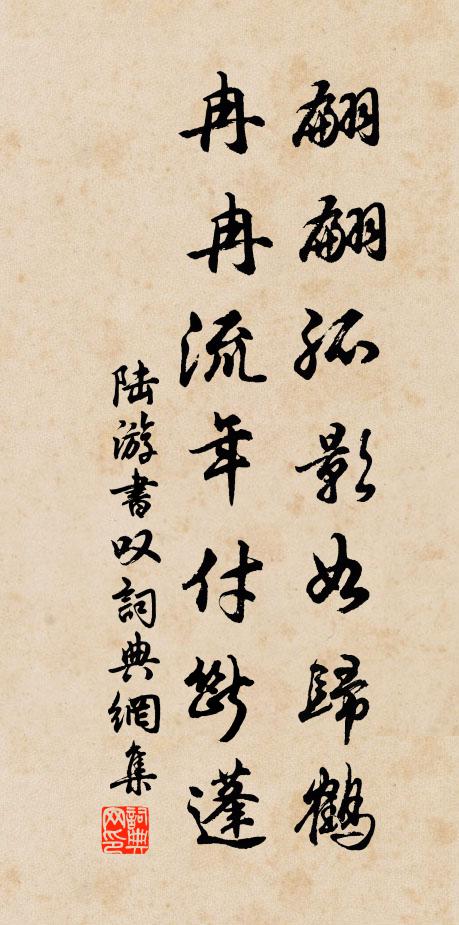 翩翩孤影如歸鶴
冉冉流年付斷蓬
陆游書叹詞典網集
詞典网印